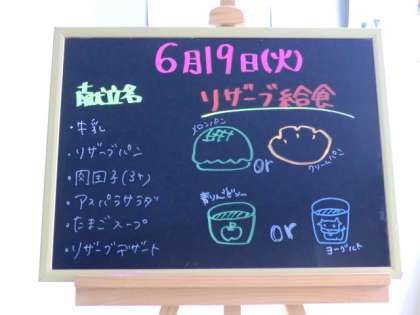 6月19日(火)
献立名
リザーブ給食
・牛乳
・リザーブパン
・肉団子(3ヶ)
・アスパラサラダ
・たまごスープ
・リザーブデザート
メロンパン
or
クリームパン
青りんごゼリー
or
ヨーグルト